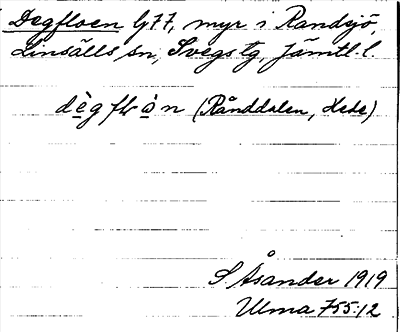 Degfloen G77, myr i Randsjö,
Linsälls sn, Svegs tg, Jämtl. l.
dègflòn (Rånddalen, Hede)
S Åsander 1919
Ulma 755:12